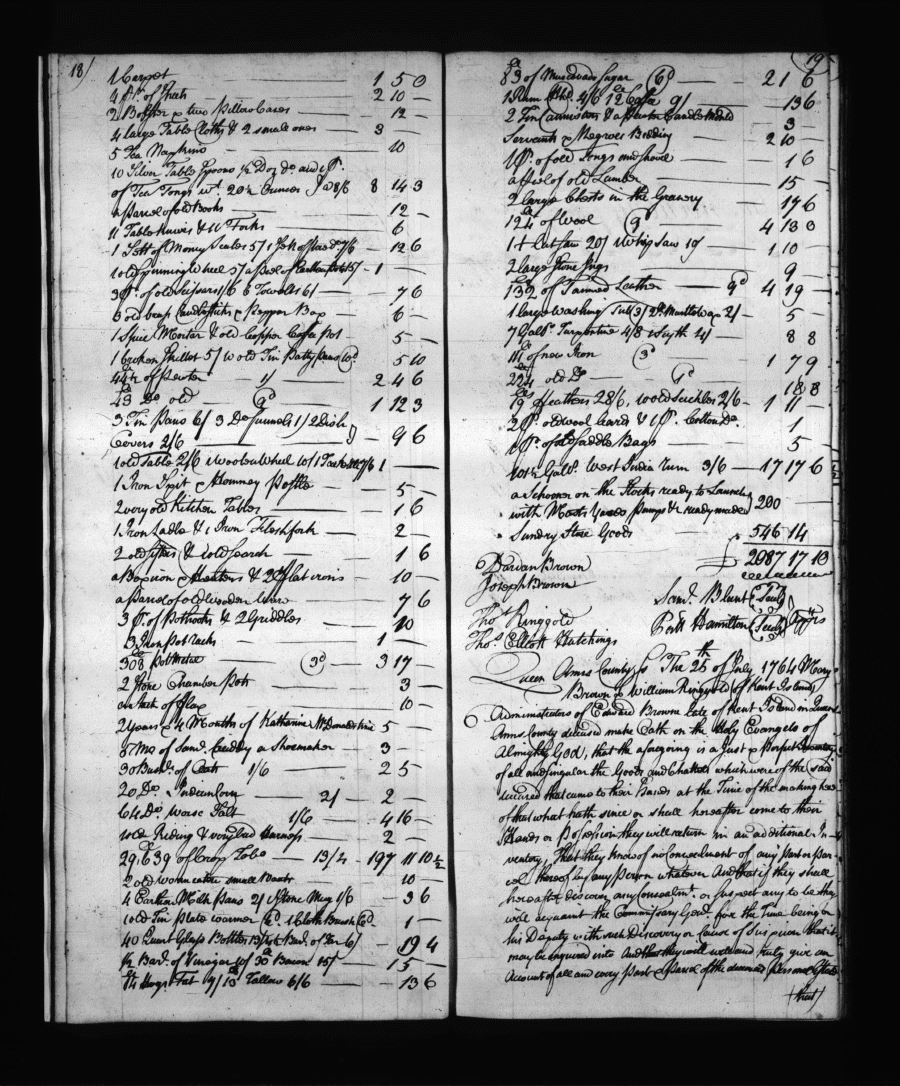 18)
1 Carpet 1 5 0
4 pr. of Sheets 2 10 —
2 Bolster & two Pillow Cases — 12 —
4 large Table Cloths & 2 small ones 3 —
5 Tea Napkins 10
10 Silver Table Spoons ½ Doz do. and 1 pr.
of Tea Tongs wt. 20½ Ounces @ 8/6 8 14 3
a parcel of old Books 12 —
11 Table knives & 11 Forks 6
1 Sett of Money Scales 5/ 12 6
1 old Spinning Wheel 5/ a parcel of 1 —
3 pr. of old Scissars 1/6 6 Towels 6/ 7 6
3 old brass Candlesticks & Pepper Box 6 —
1 Spice Mortar & old Copper Coffee Pot 5 —
1 broken Skillet 5/ 10 old Tin Patty pans 10d. 5 10
44½ of pewter 1/ 2 4 6
43 Do. old 9d 1 12 3
3 Tin Pans 6/ 3 Do Funnels 1/ 2 Dish
Covers 2/6 — 9 6
1 old Table 2/6 1 Woolen Wheel 10/ 1 7/6 1 —
1 Iron Spit & Homney Pestle 5 —
2 very old Kitchen Tables 1 6
1 Iron Ladle & 1 Iron Fleshfork 2 —
2 old Sifters & 1 old Search 1 6
a Box iron & Heaters & 2 Flat irons 10 —
a parcel of old Wooden Ware 7 6
3 pr. of Pothooks & 2 Griddles 10
3 Iron pot racks 1 —
308 Pot Metal 3d 3 17 —
2 Stone Chamber Pots 3 —
a Stack of Flax 10 —
2 years & 4 Months of Katharine 5 —
8 Mo of Saml. a Shoemaker 3 —
30 Bush. of Oats 1/6 2 5
20 Do. Indian Corn 2/ 2 —
64 Do. worse Salt 1/6 4 16 —
1 old Riding & very bad Harness 2 —
29.639 of Crop Tobo 13/4 197 11 10½
2 old worm eaten small Boats 10 —
4 Earthen Milk Pans 2/ 1 Stone Mug 1/6 3 6
1 old Tin Plate warmer 6d. 1 Cloth Brush 6d. 1 —
40 Quart Glass Bottles 13/4 ½ Bar. of Tar 6/ 19 4
½ Bar. of Vinegar 30 Bacon 15/ 1 5 —
14 Hogs Fat 7/ 13 Tallow 6/6 13 6
19
83 of Muscavado Sugar 6d 2 1 6
1 Rum Hhd. 4/6 12 9/ 13 6
2 Tin Cannisters & a Pewter Candle Mould 3 —
Servants & Negroes Bedding 2 10
1 pr. of old Tongs and Shovel 1 6
a Pile of old Lumber 15 —
2 large Chests in the Granary 17 6
124 of Wool 9 4 13 0
1 + Cut Saw 20/ 1 Whip Saw 10/ 1 10 —
2 large Stone Jugs 9 —
132 of Tanned Leather 9d 4 19 —
1 large Washing Tub 3/ 2/ 5 —
7 Gall. Turpentine 4/8 1 Syth 4/ 8 8
111 of new Iron 3d 1 7 9
224 old Do 1d 18 8
19 Feathers 28/6, 10 old Sickles 2/6 1 11 —
2 pr. old wool Cards & 1 pr. Cotton Do. 1
1 pr. of old Saddle Bags 5
101½ Gal. West India Rum 3/6 17 17 6
a Schooner on the Stocks ready to Launch
with Masts Pumps & ready made 200
Sundry Store Goods 546 14
£ 2087 17 10
Darvan Brown
Joseph Brown
Saml. Blunt (Seal)
Thos Ringgold
Pert Hamilton (Seal) Apprs
Thos. Elliott Hutchings
Queen Anns County Ss The 25th of July 1764 Mary
Brown & William Ringgold of Kent Island
Administrators of Edward Browne late of Kent Island in Queen
Anns County deceased make Oath on the Holy Evangels of
Almighty God, that the aforegoing is a Just & Perfect Inventory
of all and singular the Goods and Chattels which were of the said
deceased that came to their Hands at the Time of the making hereof
of that what hath since or shall hereafter come to their
Hands or Possession they will return in an additional In-
ventory, That they know of no Concealment of any part or par
cel thereof by any Person whatever And that if they shall
hereafter discover any Concealmt. or suspect any to be they
will acquaint the Commissary Genl. for the Time being or
his Deputy with such Discovery or Cause of Suspicion that it
may be enquired into And that they will well and truly give an
Account of all and every part & parcel of the deceaseds Personal Estate
(that)